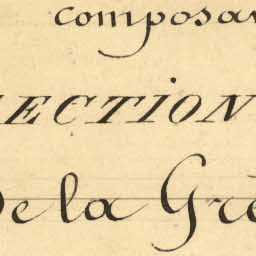 composa
ECTION
De la Gre